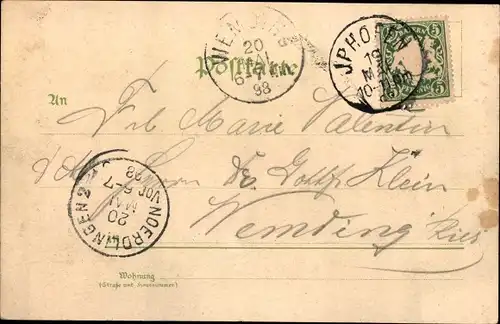 WEMDING
20
MAI
98
JPHOFEN
19
MAI
5 5
5 5
Postkarte
An
Frl. Marie Valentin
d. Gottf. Klein
Wemding Ries
NOERDLINGEN 2
20
MAI
VOR 6-7
98
Wohnung
(Straße und Hausnummer)